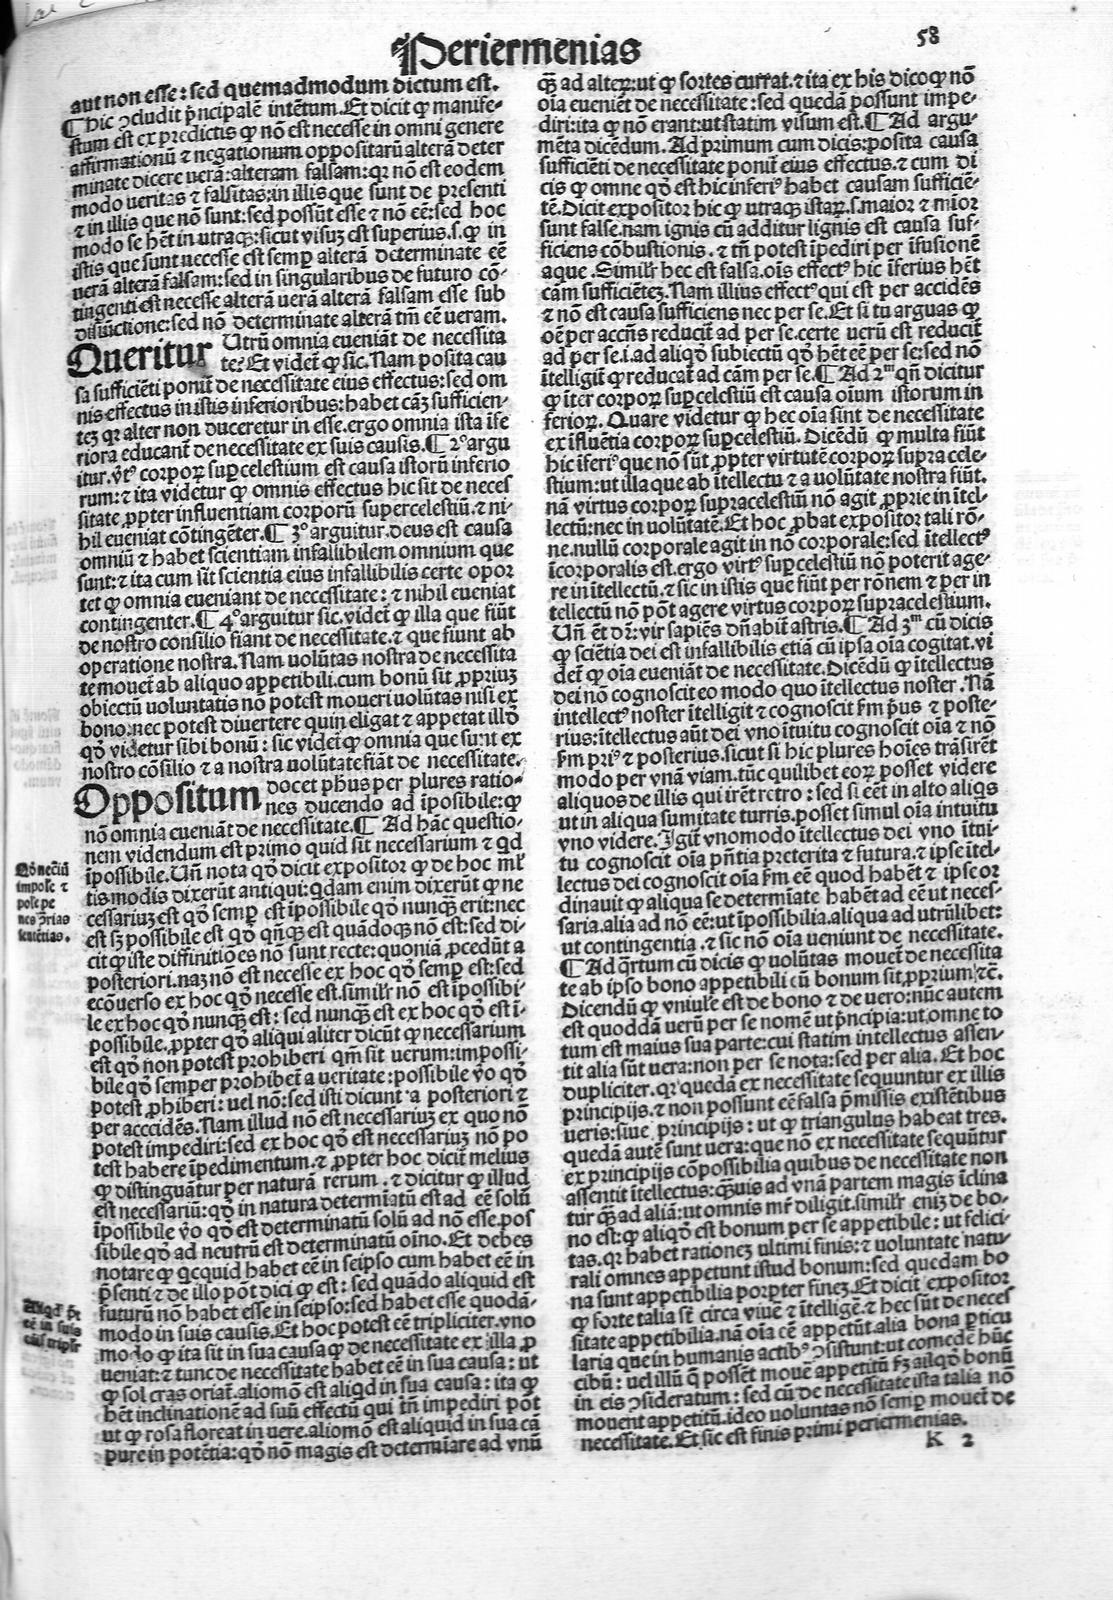 Periermenias
58
aut non esse: sed quemadmodum dictum est.
¶ Hic ↄcludit p̄ncipalē intētum. Et dicit ꝙ manife-
stum est ex predictis ꝙ nō est necesse in omni genere
affirmationū ⁊ negationum oppositarū alterā deter
minate dicere uerā: alteram falsam: qꝛ nō est eodem
modo ueritas ⁊ falsitas: in illis que sunt de presenti
⁊ in illis que nō sunt: sed possūt esse ⁊ nō eē: sed hoc
modo se hēt in utraqꝫ: sicut visuꝫ est superius. s. ꝙ in
istis que sunt necesse est semꝑ alterā determinate eē
uerā alterā falsam: sed in singularibus de futuro cō-
tingenti est necesse alterā uerā alterā falsam esse sub
disiūctione: sed nō determinate alterā tm̄ eē ueram.
Queritur Utrū omnia eueniāt de necessita
te: Et videt̄ ꝙ sic. Nam posita cau
sa sufficiēti ponit̄ de necessitate eius effectus: sed om
nis effectus in istis inferioribus: habet cāꝫ sufficien-
teꝫ qꝛ alter non duceretur in esse. ergo omnia ista īfe
riora educant̄ de necessitate ex suis causis. ¶ 2º argu
itur. v̄tꝰ corpoꝝ suꝑcelestium est causa istorū inferio
rum: ⁊ ita videtur ꝙ omnis effectus hic sit de neces
sitate ꝓpter influentiam corporū supercelestiū. ⁊ ni-
hil eueniat cōtingēter. ¶ 3º arguitur. deus est causa
omniū ⁊ habet scientiam infallibilem omnium que
sunt: ⁊ ita cum sit scientia eius infallibilis certe opor
tet ꝙ omnia eueniant de necessitate: ⁊ nihil eueniat
contingenter. ¶ 4º arguitur sic. videt̄ ꝙ illa que fiūt
de nostro consilio fiant de necessitate. ⁊ que fiunt ab
operatione nostra. Nam uolūtas nostra de necessita
te mouet̄ ab aliquo appetibili. cum bonū sit ꝓpriuꝫ
obiectū uoluntatis no potest moueri uolūtas nisi ex
bono: nec potest diuertere quin eligat ⁊ appetat illō
qō videtur sibi bonū: sic videt̄ ꝙ omnia que sunt ex
nostro cōsilio ⁊ a nostra uolūtate fiāt de necessitate.
Oppositum docet ph̄us per plures ratio-
nes ducendo ad īposibile: ꝙ
nō omnia eueniāt de necessitate. ¶ Ad hāc questio-
nem videndum est primo quid sit necessarium ⁊ qd
īpossibile. Un̄ nota qō dicit expositor ꝙ de hoc ml̄
tis modis dixerūt antiqui: qdam enim dixerūt ꝙ ne
cessariuꝫ est qō semꝑ est īpossibile qō nunqꝫ erit: nec
est sꝫ possibile est qō qn̄qꝫ est quādoqꝫ nō est: sed di-
cit ꝙ iste diffinitiōes nō sunt recte: quoniā ꝓcedūt a
posteriori. naꝫ nō est necesse ex hoc qō semꝑ est: sed
ecōuerso ex hoc qō necesse est. simil̄r nō est īpossibi-
le ex hoc qō nunqꝫ est: sed nunqꝫ est ex hoc qō est ī-
possibile. ꝓpter qō aliqui aliter dicūt ꝙ necessarium
est qō non potest prohiberi qm̄ sit uerum: impossi-
bile qō semper prohibet̄ a ueritate: possibile v̄o qō
potest ꝓhiberi: uel nō: sed isti dicunt a posteriori ⁊
per accidēs. Nam illud nō est necessariuꝫ ex quo nō
potest impediri: sed ex hoc qō est necessariuꝫ nō po
test habere īpedimentum. ⁊ ꝓpter hoc dicit̄ melius
ꝙ distinguātur per naturā rerum. ⁊ dicitur ꝙ illud
est necessariū: qō in natura determiatū est ad eē solū
īpossibile v̄o qō est determinatū solū ad nō esse. pos
sibile qō ad neutrū est determinatū oīno. Et debes
notare ꝙ qcquid habet eē in seipso cum habet eē in
p̄senti ⁊ de illo pōt dici ꝙ est: sed quādo aliquid est
futurū nō habet esse in seipso: sed habet esse quodā-
modo in suis causis. Et hoc potest eē tripliciter. vno
modo ꝙ ita sit in sua causa ꝙ de necessitate ex illa ꝓ
ueniat: ⁊ tunc de necessitate habet eē in sua causa: ut
ꝙ sol cras oriat̄. alio mō est aliqd in sua causa: ita ꝙ
hēt inclinationē ad suū effectū qui tn̄ impediri pōt
ut ꝙ rosa floreat in uere. alio mō est aliquid in sua cā
pure in potētia: qō nō magis est determiare ad vnū
Qō neciū
impose ⁊
pose pe
nes ↄrias
sentētias.
Aliqd p̄t
eē in suis
cāis tripl̄r
qꝫ ad alteꝝ: ut ꝙ sortes currat. ⁊ ita ex his dico ꝙ nō
oīa eueniēt de necessitate: sed quedā possunt impe-
diri: ita ꝙ nō erant: ut statim visum est. ¶ Ad argu-
mēta dicēdum. Ad primum cum dicis: posita causa
sufficiēti de necessitate ponit̄ eius effectus. ⁊ cum di
cis ꝙ omne qō est hic inferiꝰ habet causam sufficiē-
tē. Dicit expositor hic ꝙ utraqꝫ istaꝝ. s. maior ⁊ mīor
sunt false. nam ignis cū additur lignis est causa suf-
ficiens cōbustionis. ⁊ tn̄ potest īpediri per īfusionē
aque. Simil̄r hec est falsa. oīs effectꝰ hic īferius hēt
cām sufficiēteꝫ. Nam illius effectꝰ qui est per accidēs
⁊ nō est causa sufficiens nec per se. Et si tu arguas ꝙ
oē per acc̄ns reducit̄ ad per se. certe uerū est reducit̄
ad per se. i. ad aliqō subiectū qō hēt eē per se: sed nō
ītelligit̄ ꝙ reducat̄ ad cām per se. ¶ Ad 2ᵐ qn̄ dicitur
ꝙ īter corpoꝝ suꝑcelestiū est causa oium istorum in
ferioꝝ. Quare videtur ꝙ hec oīa sint de necessitate
ex īfluētia corpoꝝ suꝑcelestiū. Dicēdū ꝙ multa fiūt
hic īferiꝰ que nō sūt ꝓpter virtutē corpoꝝ supra cele-
stium: ut illa que ab ītellectu ⁊ a uolūtate nostra fiūt.
nā virtus corpoꝝ supracelestiū nō agit ꝓprie in ītel-
lectū: nec in uolūtatē. Et hoc ꝓbat expositor tali rō-
ne. nullū corporale agit in nō corporale: sed ītellectꝰ
īcorporalis est. ergo virtꝰ suꝑcelestiū nō poterit age-
re in ītellectū. ⁊ sic in istis que fiūt per rōnem ⁊ per in
tellectū nō pōt agere virtus corpoꝝ supracelestium.
Un̄ ēt dr̄: vir sapiēs dn̄abit̄ astris. ¶ Ad 3ᵐ cū dicis
ꝙ sciētia dei est infallibilis etiā cū ipsa oīa cogitat. vi
det̄ ꝙ oīa eueniāt de necessitate. Dicēdū ꝙ ītellectus
dei nō cognoscit eo modo quo ītellectus noster. Nā
intellectꝰ noster ītelligit ⁊ cognoscit fm̄ p̄us ⁊ poste-
rius: ītellectus aūt dei vno ītuitu cognoscit oīa ⁊ nō
fm̄ priꝰ ⁊ posterius. sicut si hic plures hoīes trāsirēt
modo per vnā viam. tūc quilibet eoꝝ posset videre
aliquos de illis qui irēt retro: sed si eēt in alto aliqs
ut in aliqua sumitate turris. posset simul oīa intuitu
vno videre. Igit̄ vno modo ītellectus dei vno ītui-
tu cognoscit oīa p̄ntia preterita ⁊ futura. ⁊ ipse ītel-
lectus dei cognoscit oīa fm̄ eē quod habēt ⁊ ipse or
dinauit ꝙ aliqua se determīate habēt ad eē ut neces-
saria. alia ad nō eē: ut īpossibilia. aliqua ad utrūlibet:
ut contingentia. ⁊ sic nō oīa ueniunt de necessitate.
¶ Ad q̄rtum cū dicis ꝙ uolūtas mouet̄ de necessita
te ab ipso bono appetibili cū bonum sit ꝓprium ⁊c̄.
Dicendū ꝙ vniul̄r est de bono ⁊ de uero: nūc autem
est quoddā uerū per se nomē ut p̄ncipia: ut omne to
tum est maius sua parte: cui statim intellectus assen-
tit alia sūt uera: non per se nota: sed per alia. Et hoc
dupliciter. qꝛ quedā ex necessitate sequuntur ex illis
principijs. ⁊ non possunt eē falsa p̄missis existētibus
ueris: siue principijs: ut ꝙ triangulus habeat tres.
quedā autē sunt uera: que nō ex necessitate sequūtur
ex principijs cōpossibilia quibus de necessitate non
assentit ītellectus: qꝫuis ad vnā partem magis īclina
tur qꝫ ad aliā: ut omnis mr̄ diligit. simil̄r eniꝫ de bo-
no est: ꝙ aliqō est bonum per se appetibile: ut felici-
tas. qꝛ habet rationeꝫ ultimi finis: ⁊ uoluntate natu-
rali omnes appetunt istud bonum: sed quedam bo
na sunt appetibilia porpter fineꝫ. Et dicit expositor
ꝙ forte talia st̄ circa viuē ⁊ ītelligē. ⁊ hec sūt de neces
sitate appetibilia. nā oīa eē appetūt. alia bona ꝑticu
laria que in humanis actibꝰ ↄsistunt: ut comedē hūc
cibū: uel illū q̄ possēt mouē appetitū fꝫ aliqō bonū
in eis ↄsideratum: sed cū de necessitate ista talia nō
mouent appetitū. ideo uoluntas nō semꝑ mouet̄ de
necessitate. Et sic est finis primi periermenias.
K 2